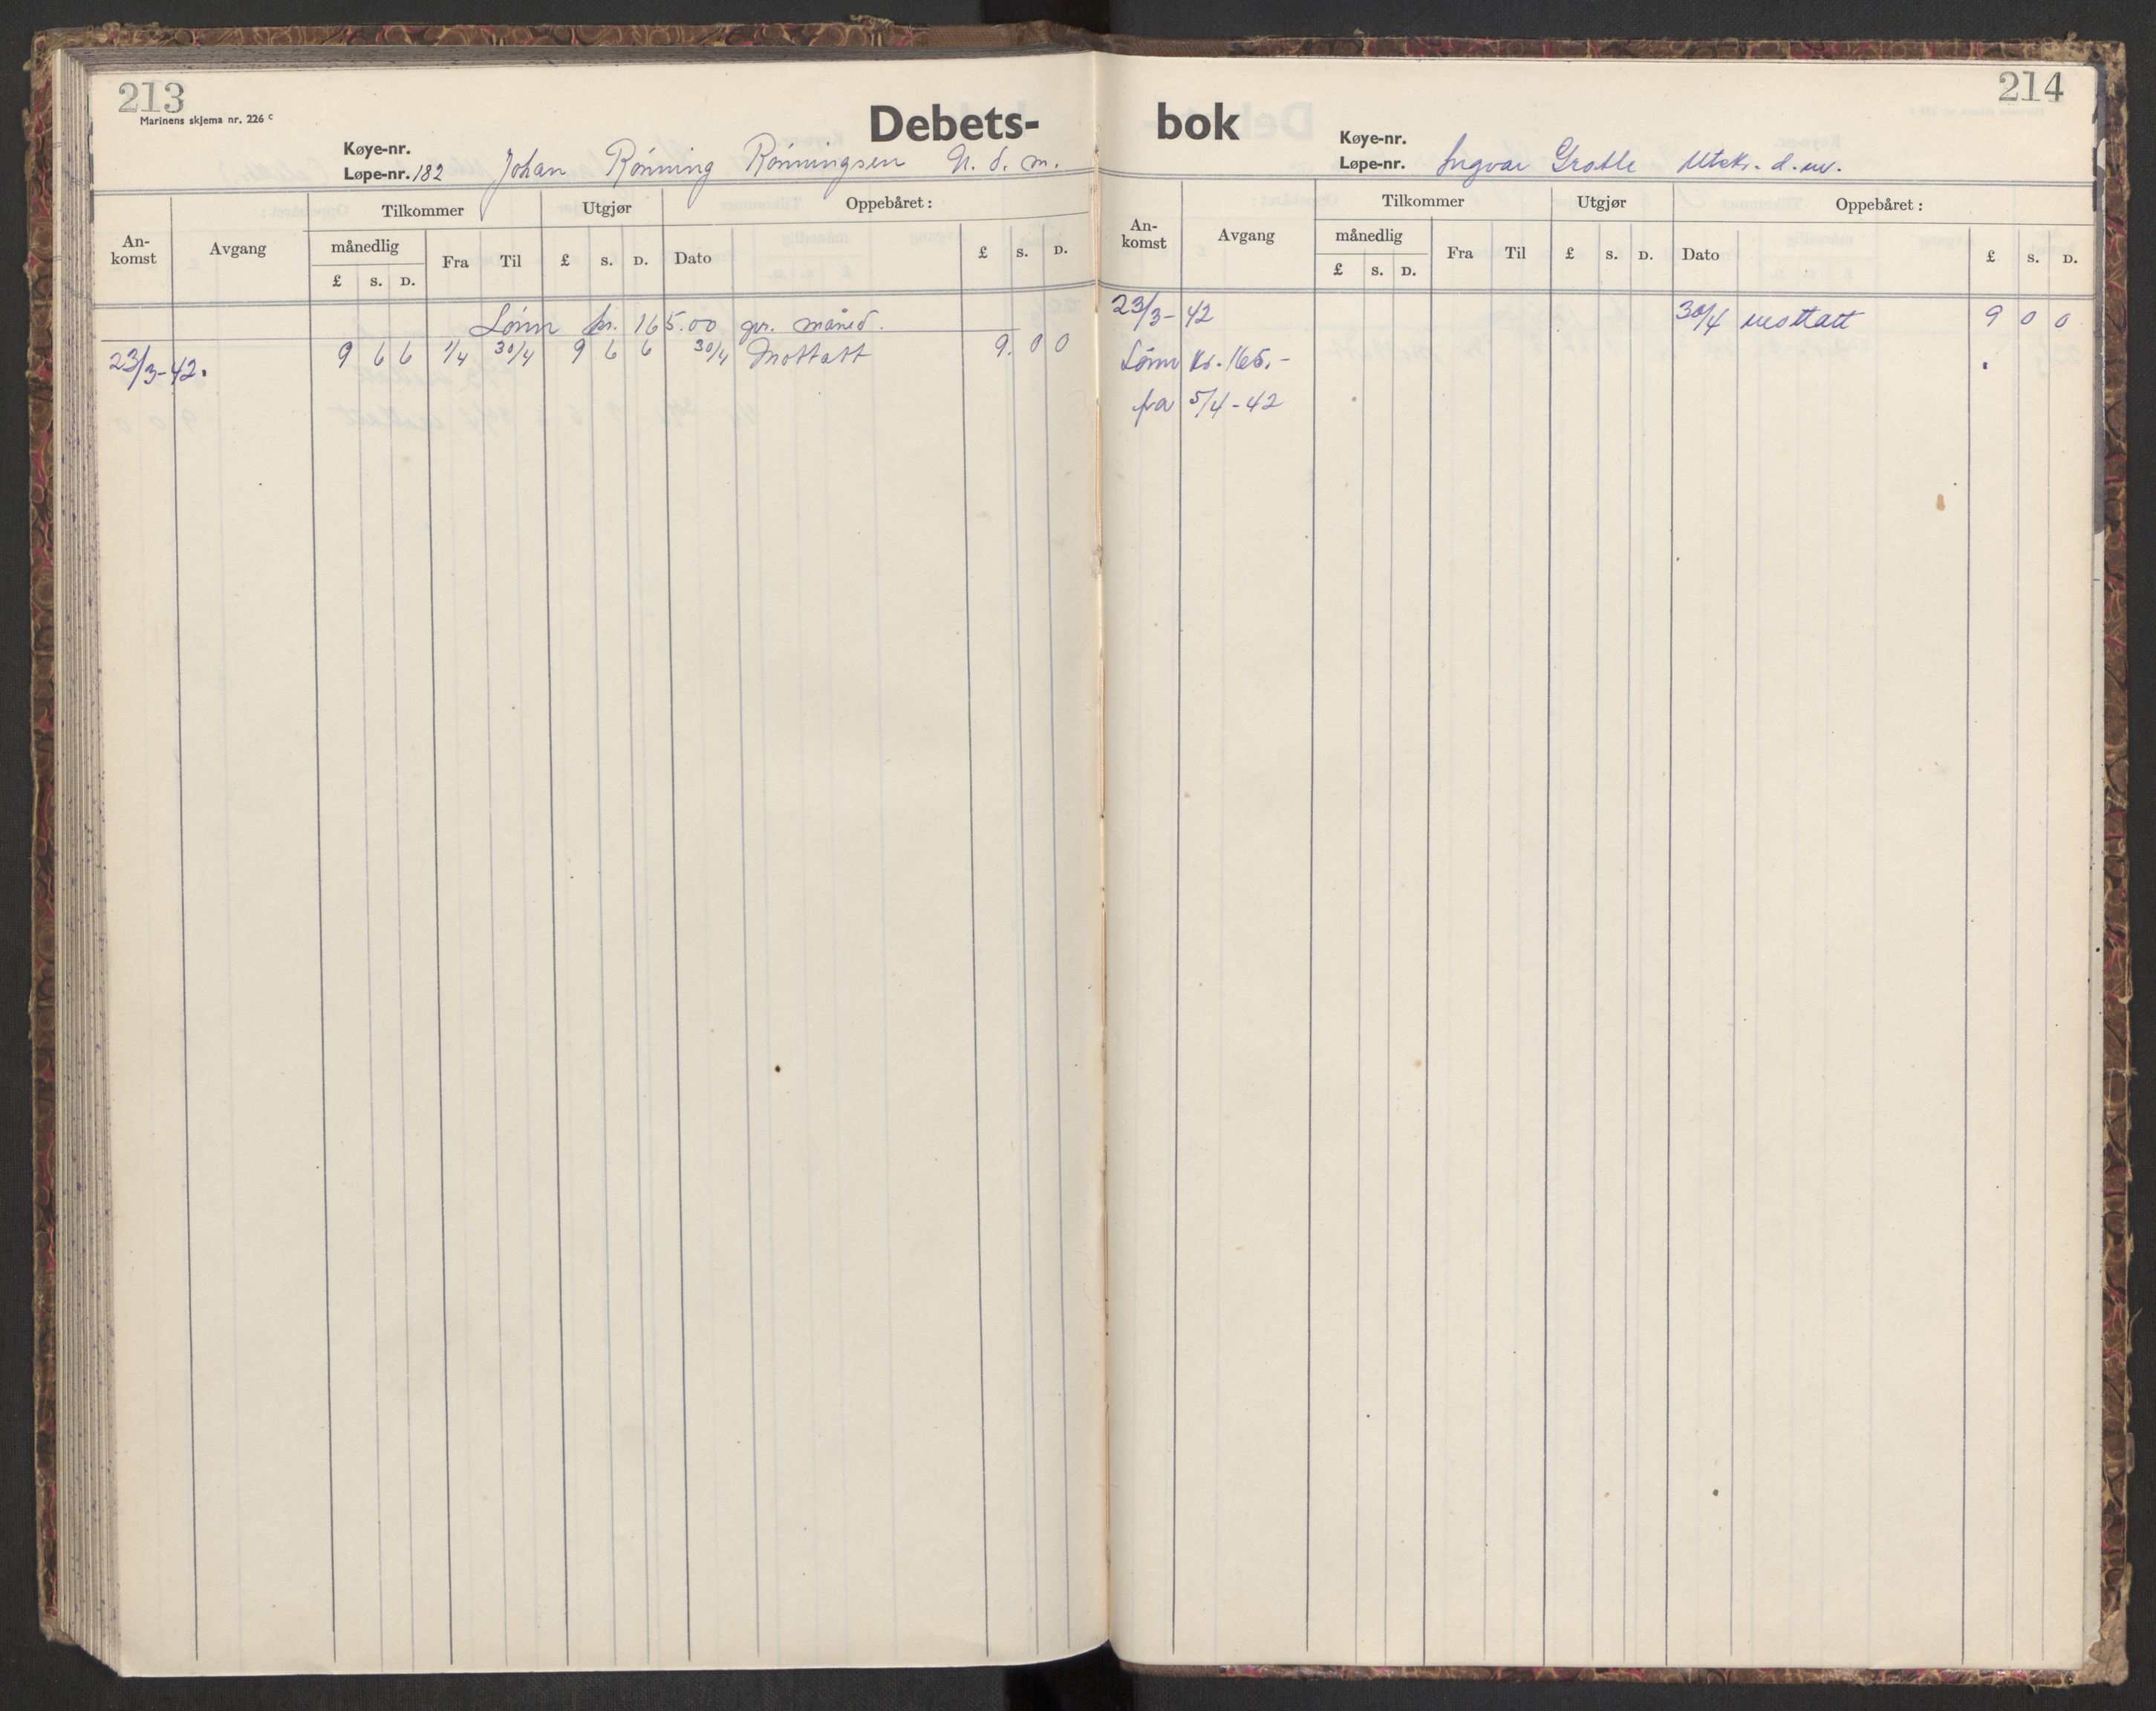 213
Marinens skjema nr. 226 c
Debets-
Køye-nr.
Løpe-nr. 182 Johan Rönning Rönningsen U. d. m.
An-komst Avgang Tilkommer månedlig £ s. D. Fra Til Utgjør £ s. D. Oppebåret: Dato £ s. D.
Lönn kr. 165.00 pr. måned.
23/3-42. 9 6 6 1/4 30/4 9 6 6 30/4 Mottatt 9. 0 0
214
bok
Køye-nr.
Løpe-nr. Ingvar Grotle Utskr. d. m.
An-komst Avgang Tilkommer månedlig £ s. D. Fra Til Utgjør £ s. D. Oppebåret: Dato £ s. D.
23/3-42 30/4 mottatt 9 0 0
Lönn kr. 165.-
fra 5/4-42